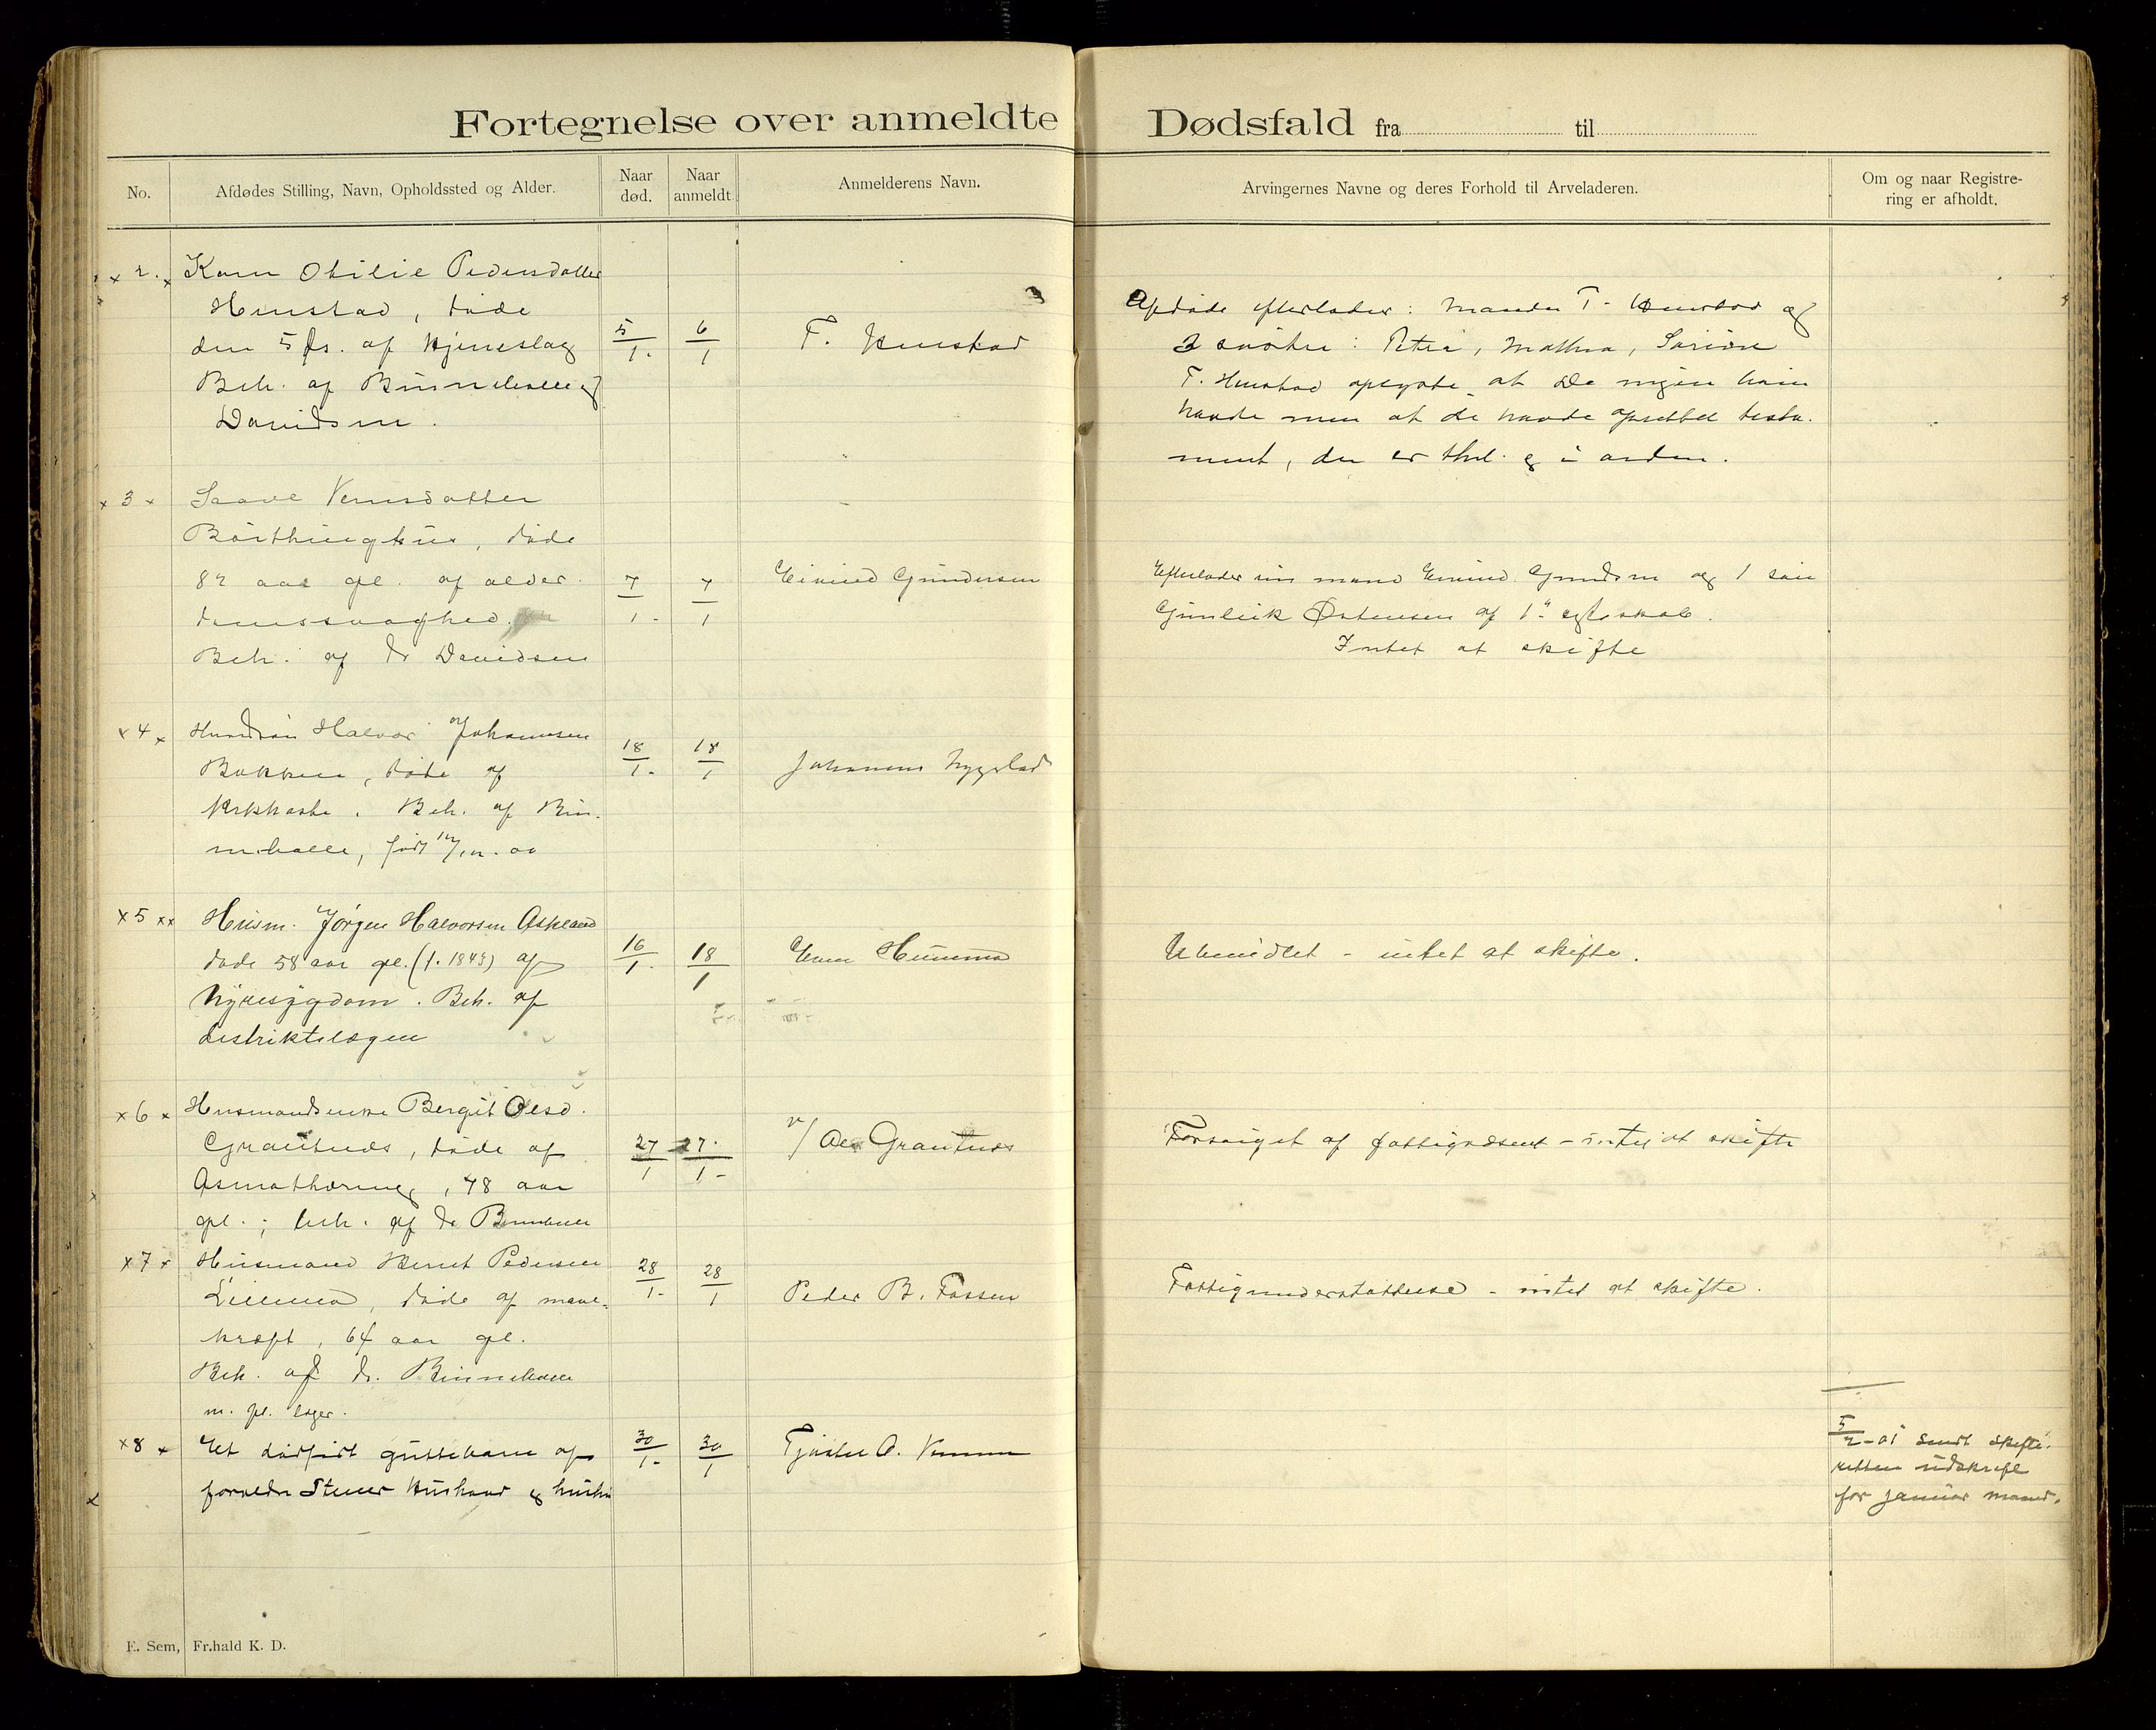 Fortegnelse over anmeldte Dødsfald fra til
No.
Afdødes Stilling, Navn, Opholdssted og Alder.
Naar død.
Naar anmeldt.
Anmelderens Navn.
Arvingernes Navne og deres Forhold til Arveladeren.
Om og naar Registre-
ring er afholdt.
x 2. x Karn Otilie Pedersdatter
Henstad, døde
den 5 ds. af Hjerneslag
Beh. af Binnehalle og
Davidsen.
5/1.
6/1
T. Henstad
Afdøde efterlader: Manden T. Henstad og
3 søstre: Petra, Mathea,
T. Henstad opgyste at de ingen barn
havde men at de havde oprettet testa.
ment, der er thnl. og i orden.
x 3 x
Saave Versdatter
døde
82 aar gl. af alder.
domssvaghed.
Beh. af dr Davidsen
7/1.
7/1
Eivind Gundersen
Efterlader sin mand Eivind Gundersen og 1 søn
Gunleik Østensen af 1ste egteskab.
Intet at skifte
x 4 x
Halvor Johannesen
Bakken, døde af
Kikhoste. Beh. af Bin-
nehalle, født 12/12. 00
18/1.
18/1
Johannes Nygstad
x 5 xx Husm. Jørgen Halvorsen Askland
døde 58 aar gl. (f. 1843) af
Nyresygdom. Beh. af
distriktslægen
16/1.
18/1
Ubemidlet - intet at skifte.
x 6 x Husmandsenke Bergit Olsd.
Grautnes, døde af
Asmatharing, 78 aar
gl.; beh. af dr Binnehalle
27/1
27./1-
v/ Ole Grautnes
Forsørget af fattigvæsent - intet at skifte
x 7 x Husmand Bernt Pedersen
døde af mave-
kræft, 64 aar gl.
Beh. af dr. Binnehalle
m. fl. læger.
28/1-
28/1
Peder B. Fossen
Fattigunderstøttelse - intet at skifte.
x 8 x Et dødfødt guttebarn af
forældre Stener Hushaar og hustru
30/1-
30/1
Tjøstel O.
5/2-01 sendt skifte-
retten udskrift
for januar maaned.
E. Sem, Fr.hald K. D.